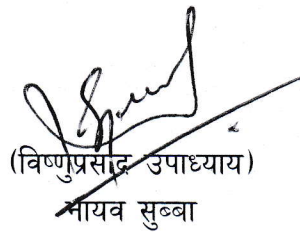 (विष्णुप्रसाद उपाध्याय)
नायव सुब्बा